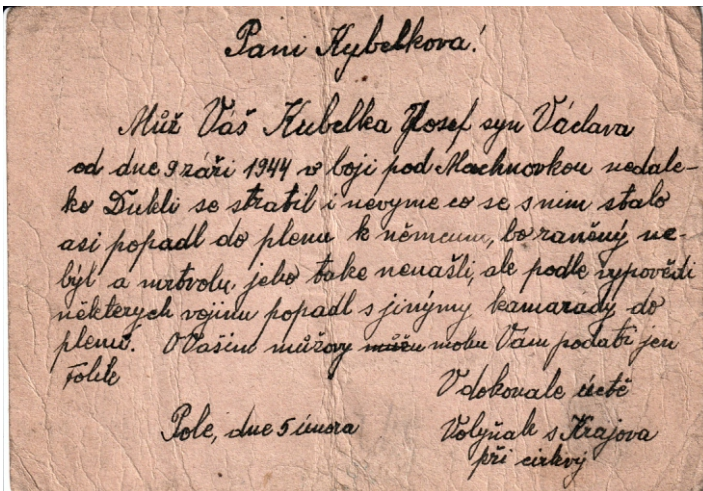 Pani Kybelkova!
Můž Váš Kubelka Josef syn Václava
od dne 9 záři 1944 v boji pod Machnovkou nedale-
ko Dukli se stratil i nevyme co se s nim stalo
asi popadl do plenu k němcum, bo raněný ne-
být a mrtvolu jeho take nenašli, ale podle vypovědi
některych vojinu popadl s jinýmy kamarady do
plenu. O Vašim můžovy můžu mohu Vam podati jen
tolik
V dokonale úctě
Pole, dne 5 února
Volyňak s Krajova
při cirkvy